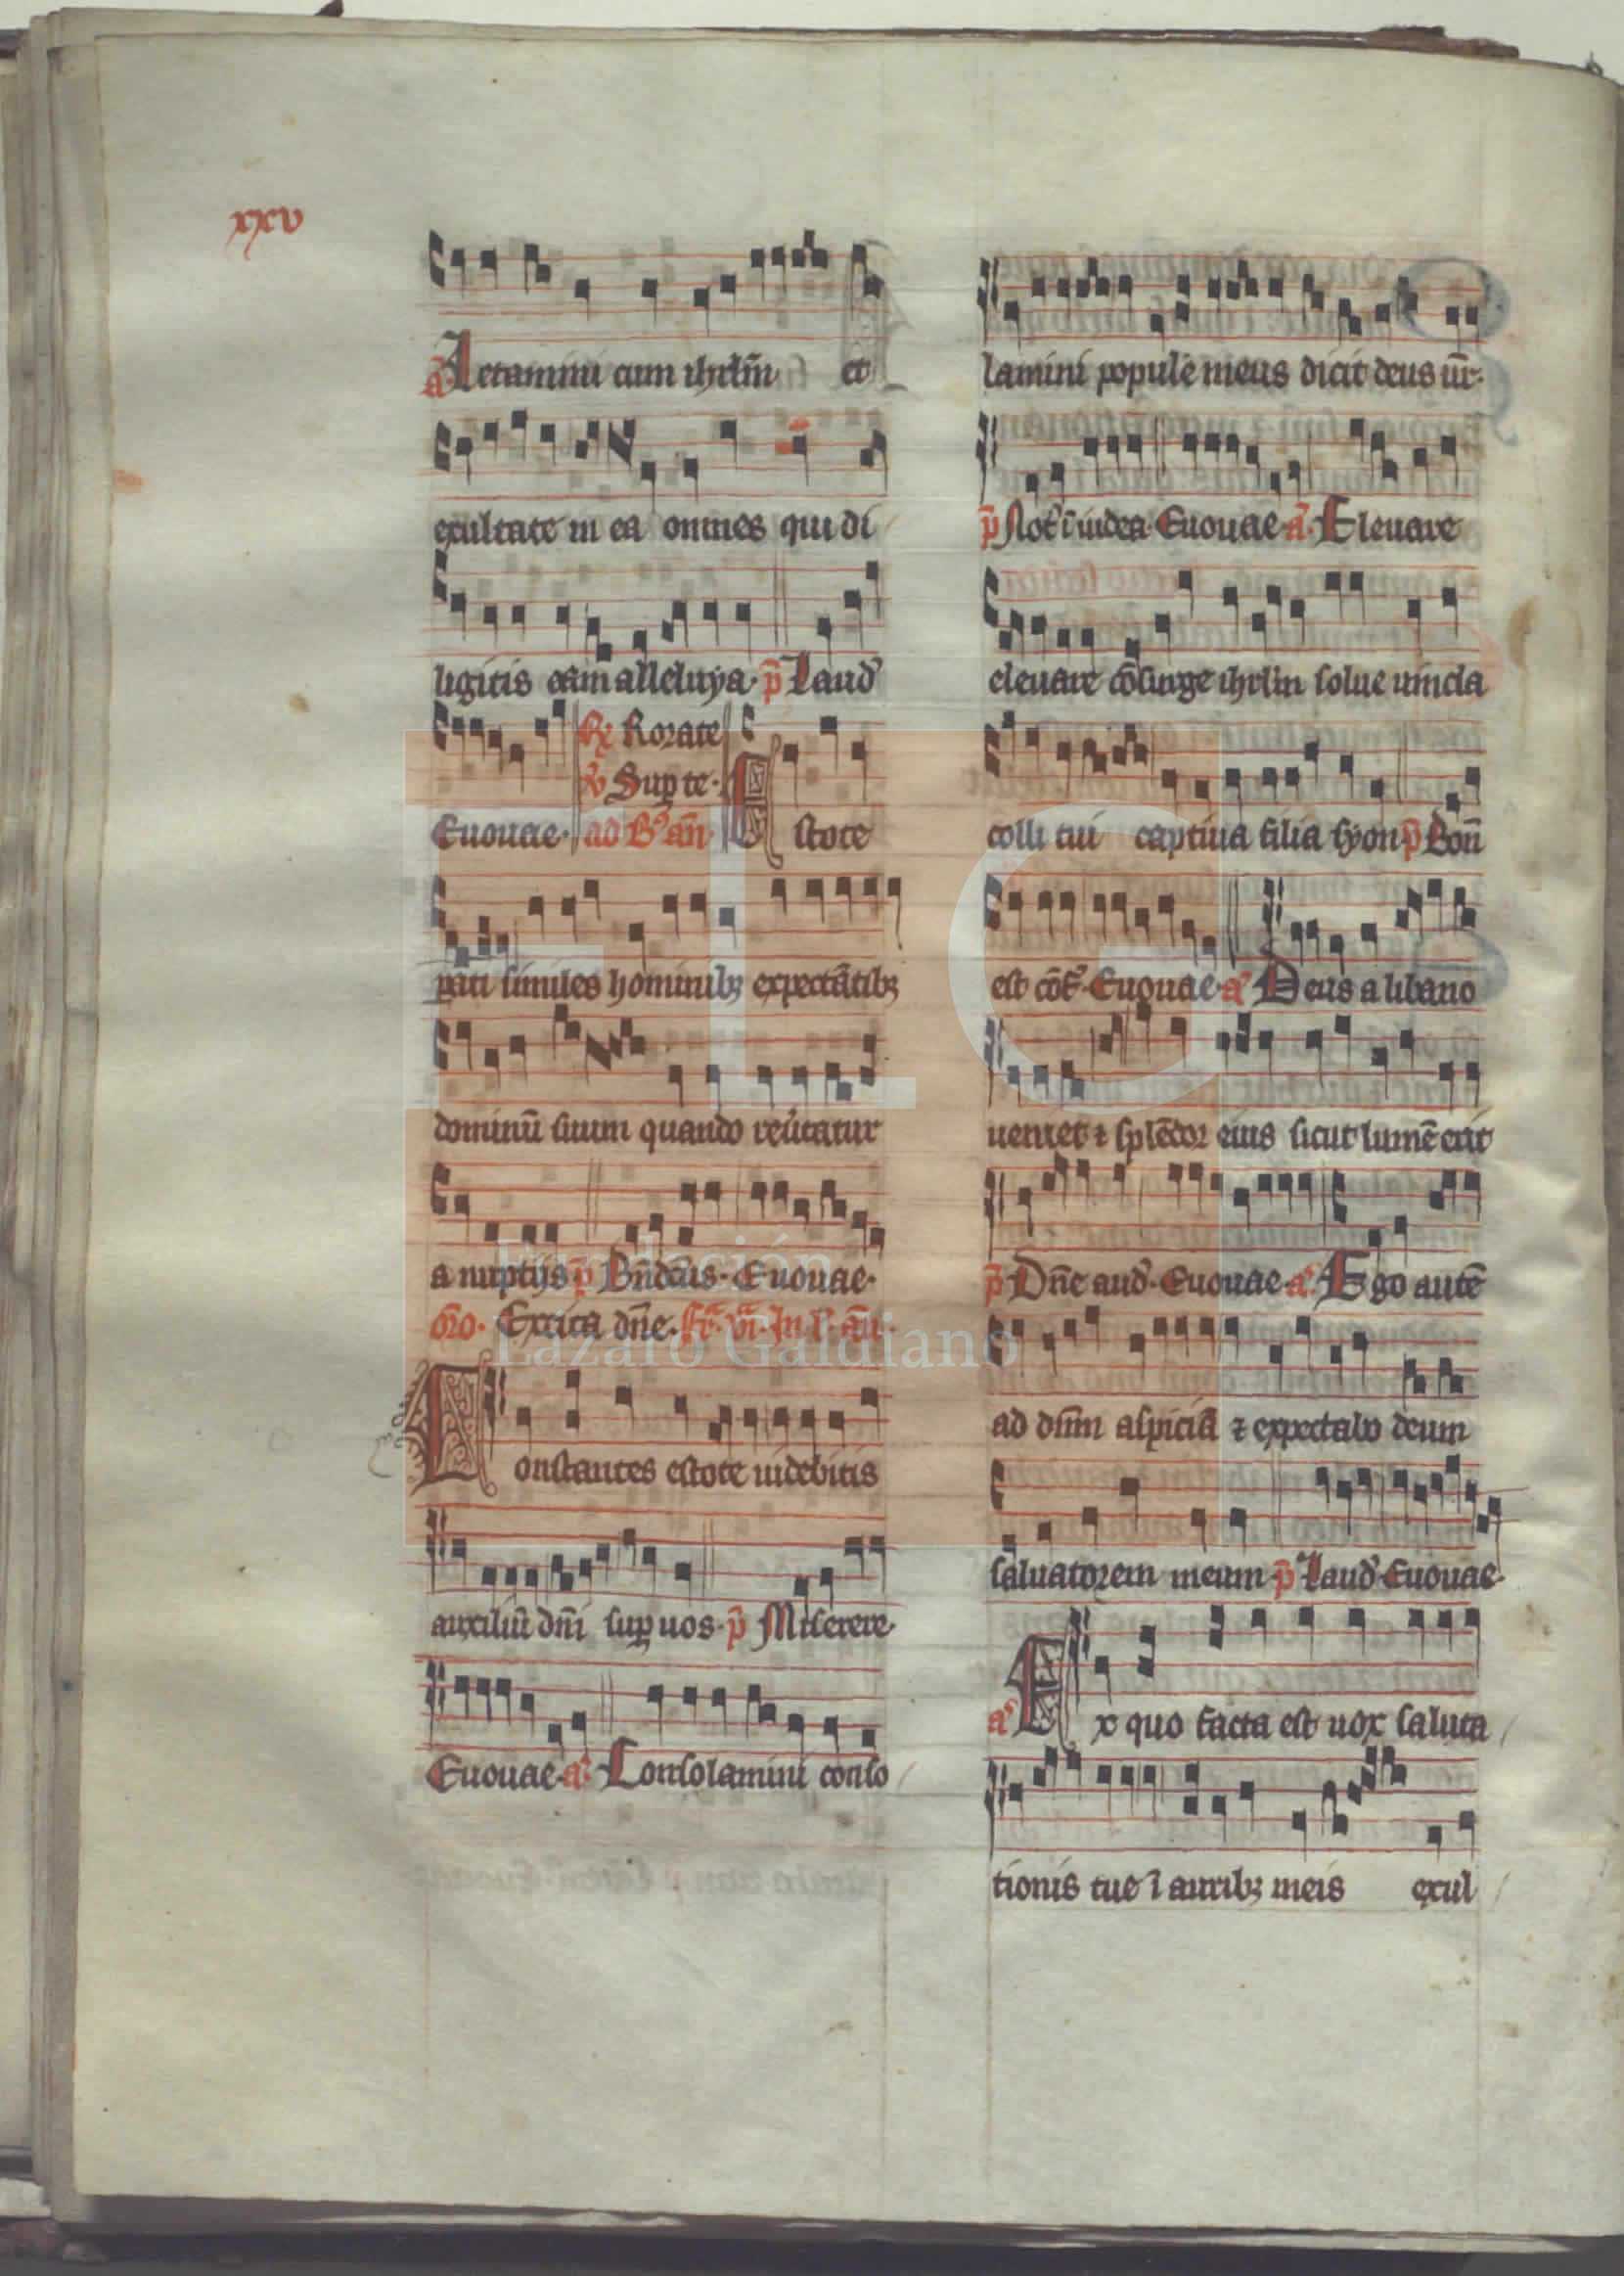 xxv
a Letamini cum ihrl̄m et
exultate in ea omnes qui di
ligitis eam alleluya. p̄ Laud
℟ Rorate
℣ Sup te.
Euouae. ad B. an̄ Estote
parati similes hominibꝫ expectātibꝫ
dominū suum quando reūtatur
a nuptijs p̄ Bn̄dcūs. Euouae.
Oro. Excita dn̄e. Fr̄. vi. In l. an̄.
Constantes estote uidebitis
auxiliū dn̄i sup uos. p̄ Miserere.
Euouae. a. Consolamini conso
lamini popule meus dicit deus ur̄.
p̄ Not ī iudea. Euouae. a. Eleuare
eleuare cōsurge ihrlm̄ solue uincla
colli tui captiua filia syon p̄ Bon̄
est cōf. Euouae. a Deus a libano
ueniet ⁊ splēdor eius sicut lumē erit
p̄ Dn̄e aud. Euouae. a. Ego autē
ad dn̄m aspiciā ⁊ expectabo deum
saluatorem meum p̄ Laud Euouae.
a Ex quo facta est uox saluta
tionis tue ī auribꝫ meis exul
FLG
Fundación
Lázaro Galdiano